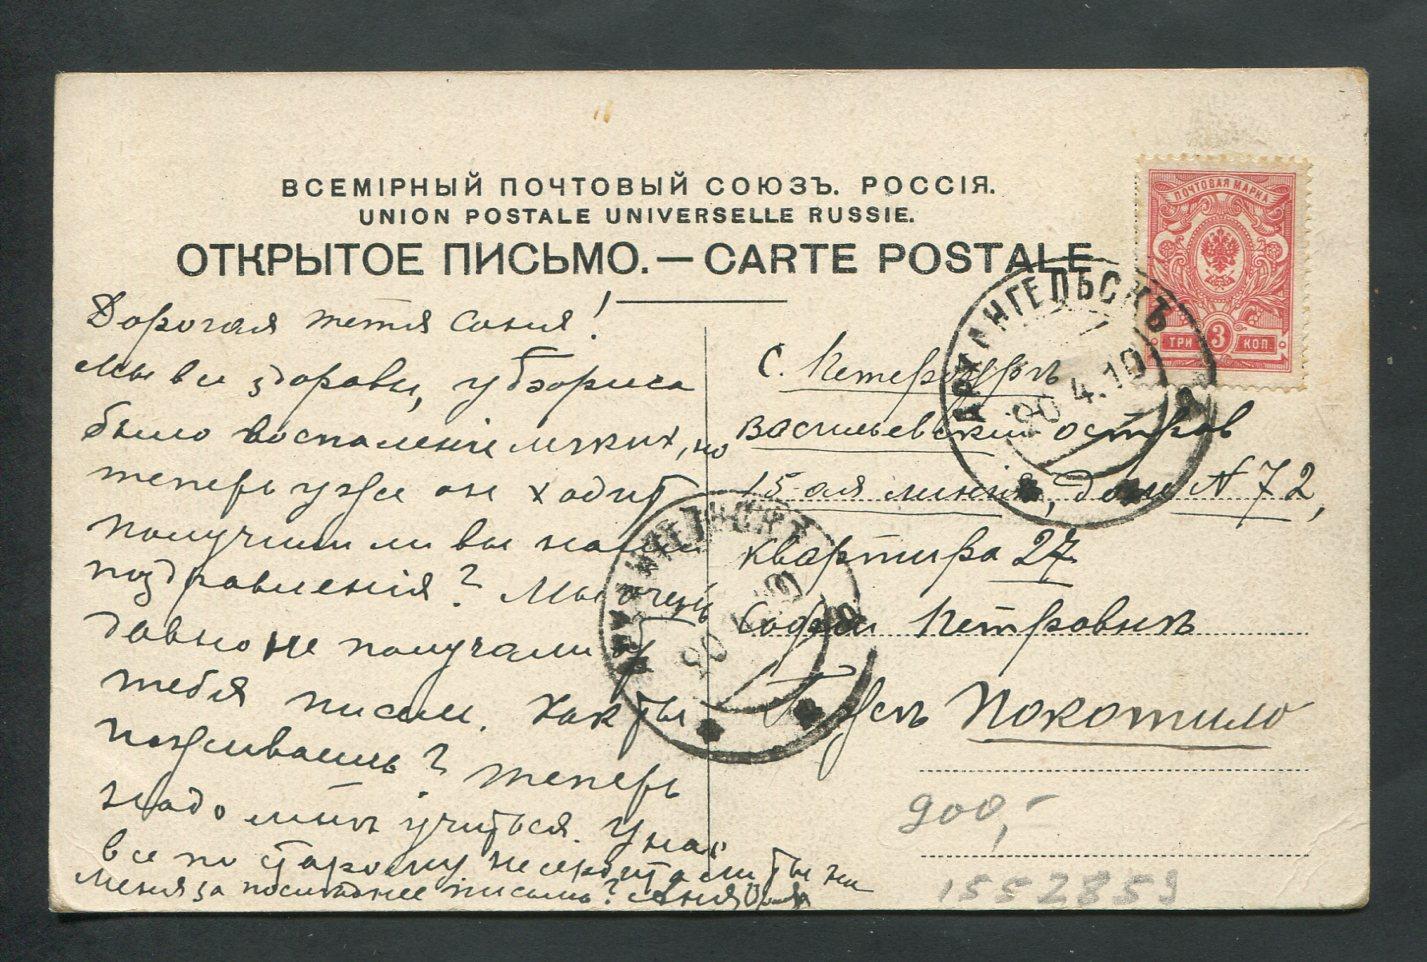 ВСЕМІРНЫЙ ПОЧТОВЫЙ СОЮЗЪ. РОССІЯ.
UNION POSTALE UNIVERSELLE RUSSIE.
ОТКРЫТОЕ ПИСЬМО. — CARTE POSTALE
ПОЧТОВАЯ МАРКА
ТРИ 3 КОП.
АРХАНГЕЛЬСКЪ
20 4.10
Дорогая тетя Соня!
Мы все здоровы, у Бориса
было воспаленіе легких, но
теперь уже он ходит
получили ли вы наши
поздравленія? Мы очень
давно не получали от
тебя писем. Как ты
поживаешь? теперь
надо мне учиться. У нас
все по старому не сердита ли ты на
меня за последнее письмо?
С. Петербургъ
Васильевский остров
15-ая линия, дом N 72,
квартира 27
Софьи Петровнѣ
Покотило
АРХАНГЕЛЬСКЪ
900,-
1552859